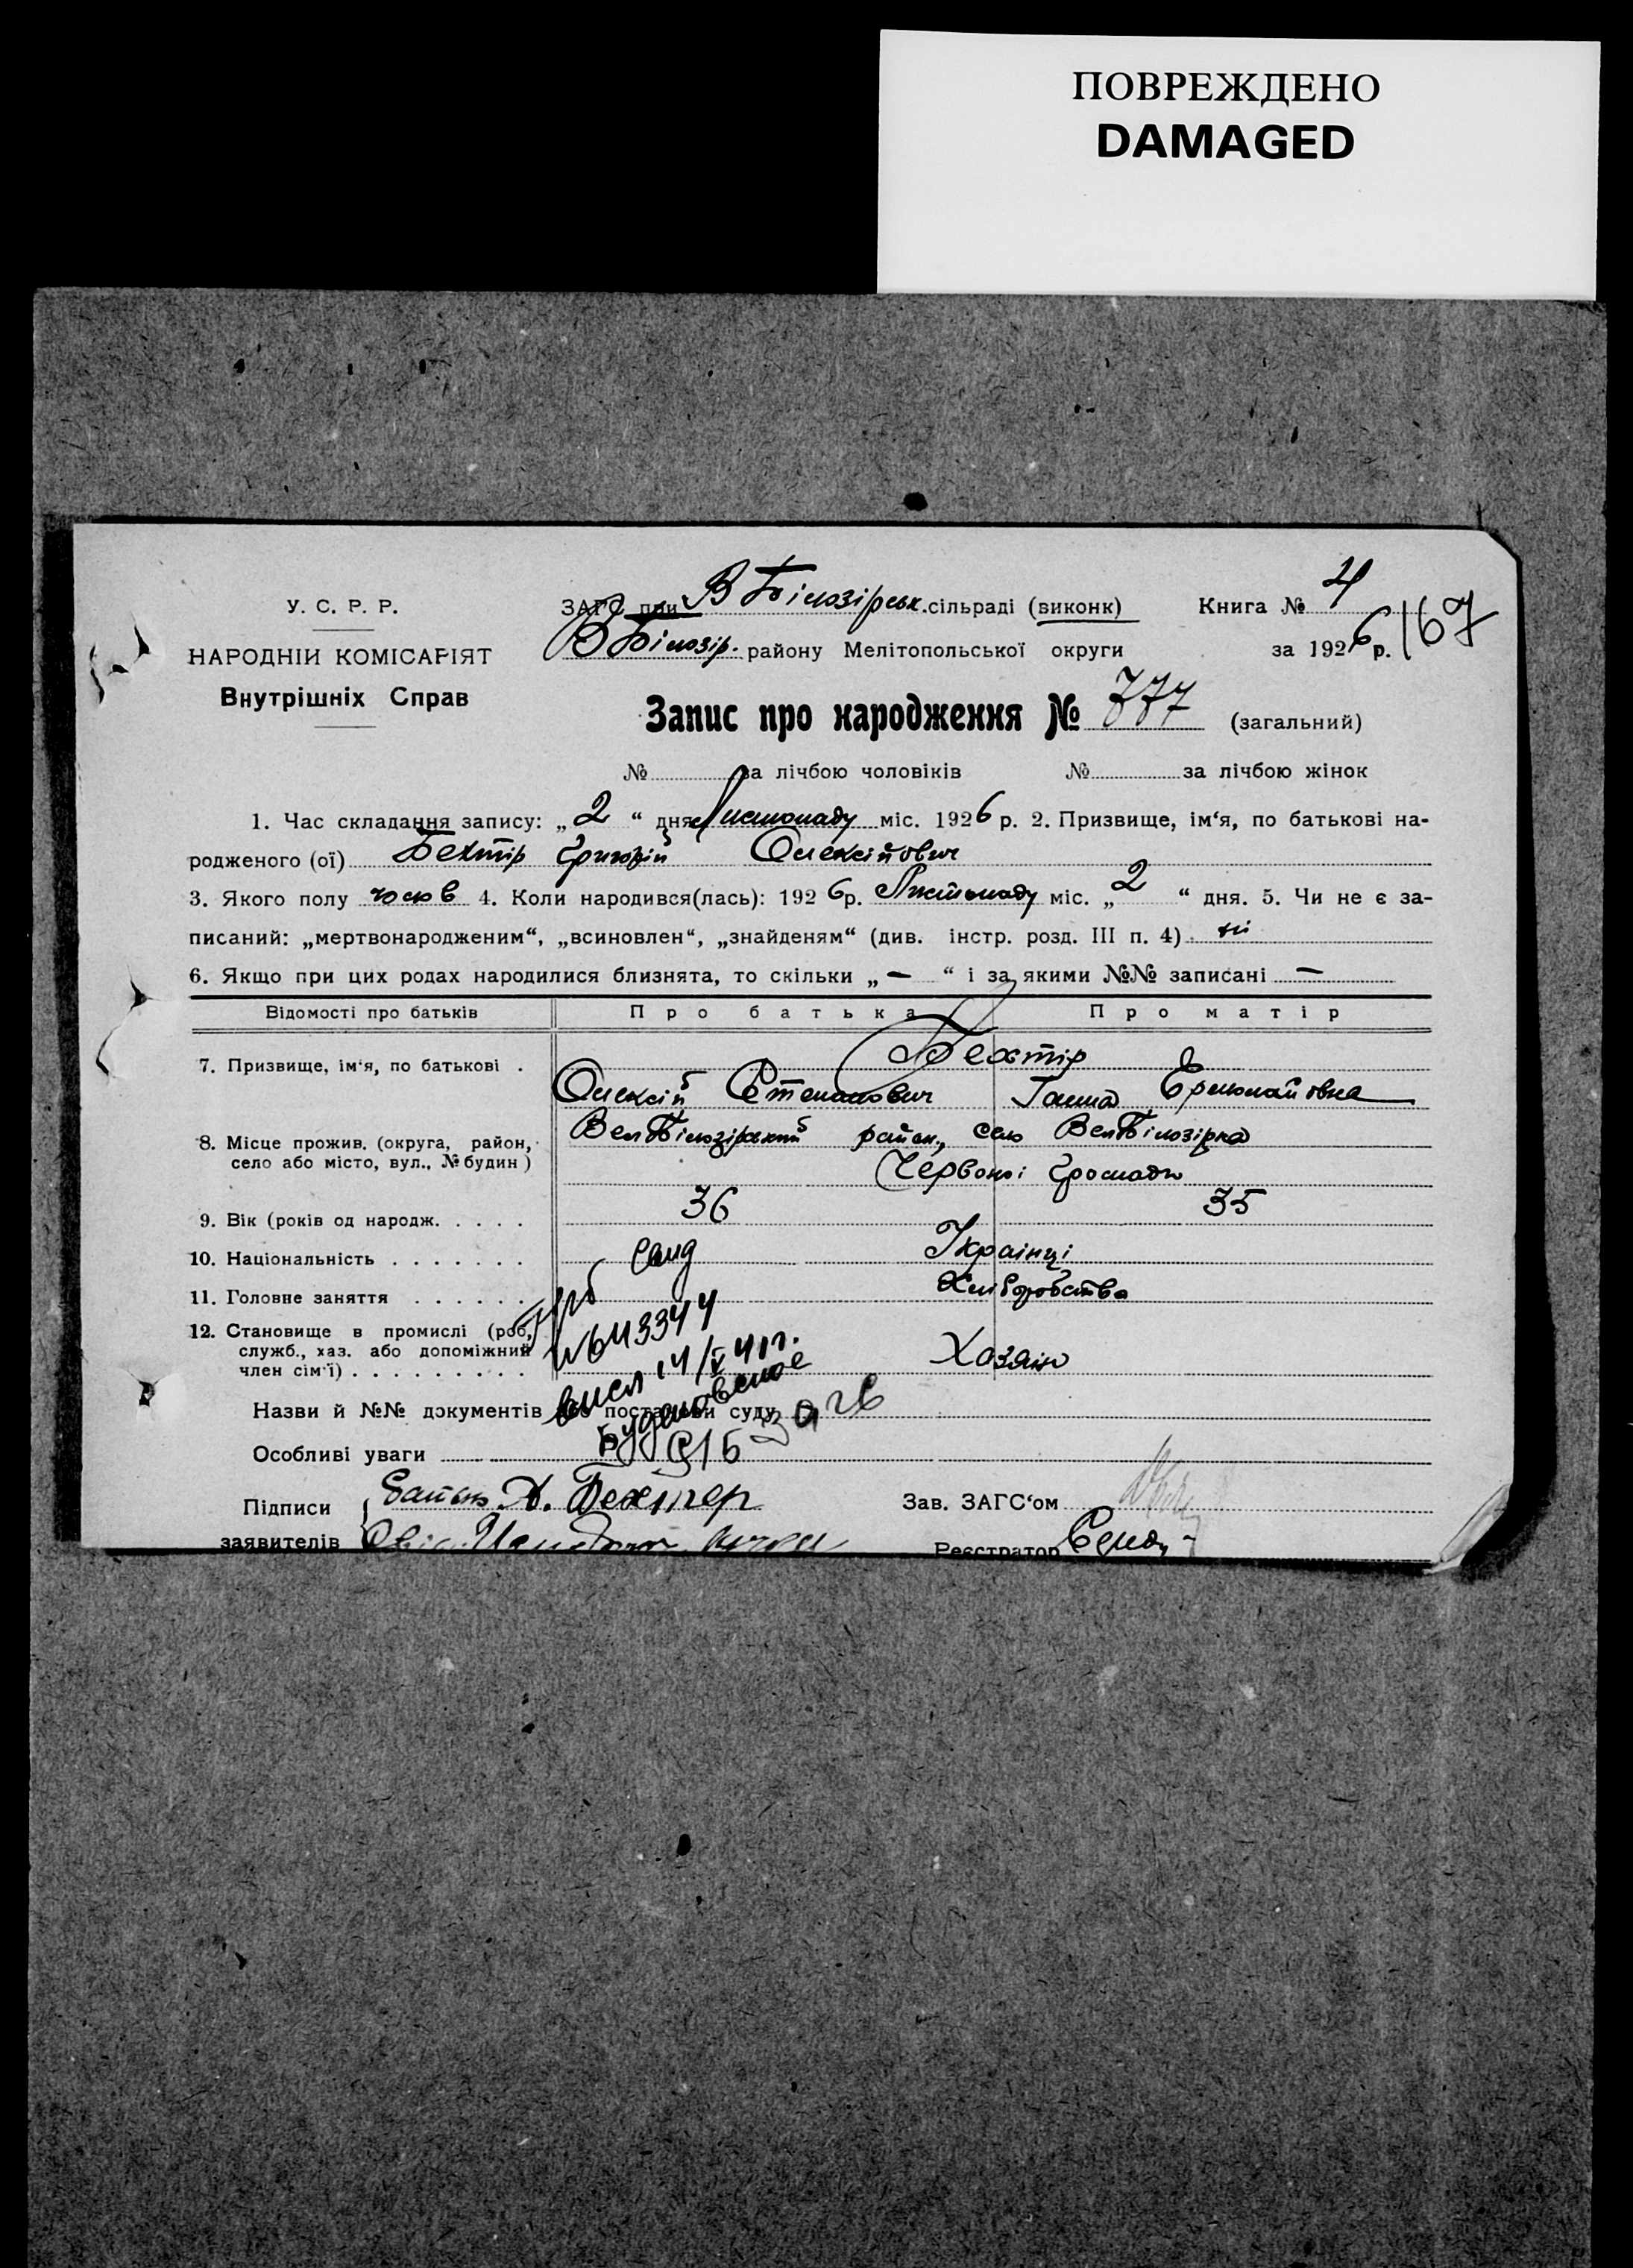 ПОВРЕЖДЕНО
DAMAGED
У. С. Р. Р.
НАРОДНІЙ КОМІСАРІЯТ
Внутрішніх Справ
ЗАГС при В Білозірськ. сільраді (виконк) Книга № 4
В Білозір. району Мелітопольської округи за 1926 р. 167
Запис про народження № 777 (загальний)
№ за лічбою чоловіків № за лічбою жінок
1. Час складання запису: „ 2 “ дня Листопаду міс. 1926 р. 2. Призвище, ім‘я, по батькові на-
родженого (ої) Бехтір Григорій Олексійович
3. Якого полу чолов 4. Коли народився(лась): 1926р. Листопаду міс. „ 2 “ дня. 5. Чи не є за-
писаний: „мертвонародженим“, „всиновлен“, „знайденям“ (див. інстр. розд. III п. 4) ні
6. Якщо при цих родах народилися близнята, то скільки „ — “ і за якими №№ записані —
Відомості про батьків Про батька Про матір
7. Призвище, ім‘я, по батькові . Бехтір
Олексій Степанович Ганна
8. Місце прожив. (округа, район, село або місто, вул., № будин) ВелБілозірський район., село ВелБілозірка
Червоної Громади
9. Вік (років од народж. . . . . 36 35
10. Національність . . . . . . . Українці
11. Головне заняття . . . . . . Хліборобство
12. Становище в промислі (роб, служб., хаз. або допоміжний член сім‘ї) . . . . . . . . . Хозяін
№ 643344
висл 14/V 41 г.
Назви й №№ документів або постанови суду
загс
Особливі уваги
Підписи заявителів { батько А. Бехтер
Зав. ЗАГС‘ом
Реєстратор